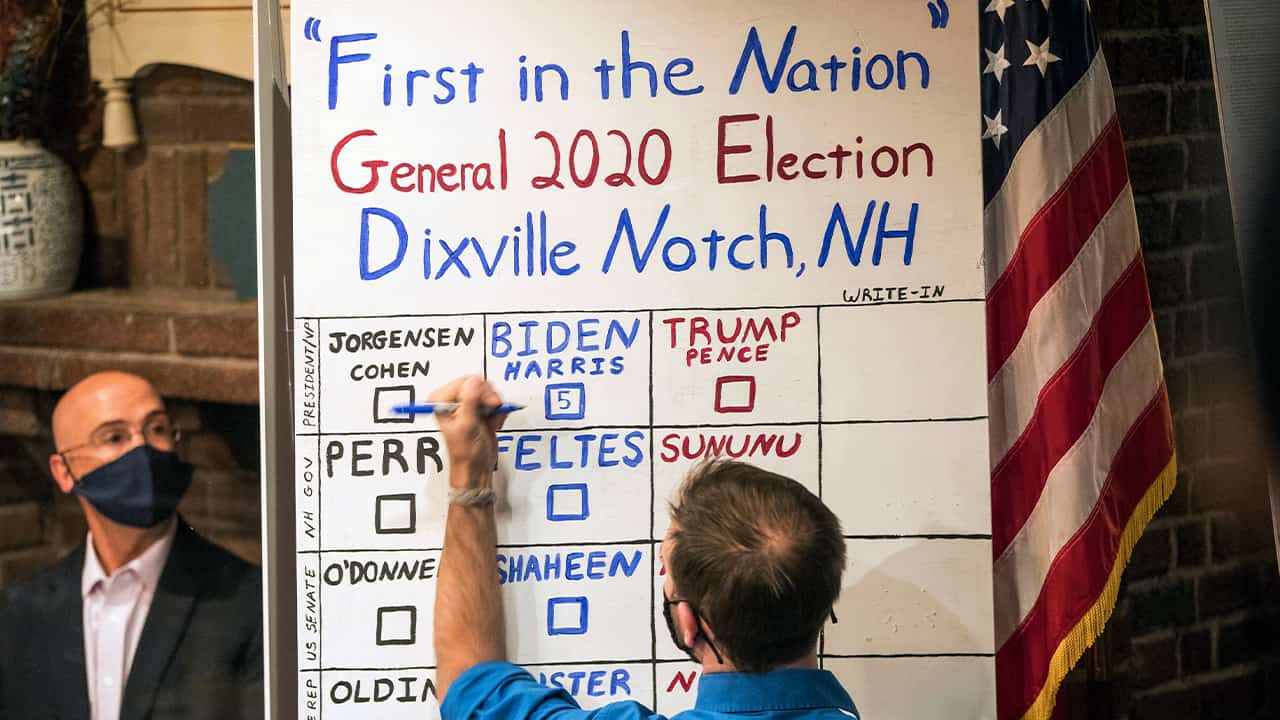 "First in the Nation"
General 2020 Election
Dixville Notch, NH
WRITE-IN
PRESIDENT/VP
JORGENSEN
COHEN
BIDEN
HARRIS
5
TRUMP
PENCE
NH GOV
PERR
FELTES
SUNUNU
US SENATE
O'DONNE
SHAHEEN
REP
OLDIN
USTER
N